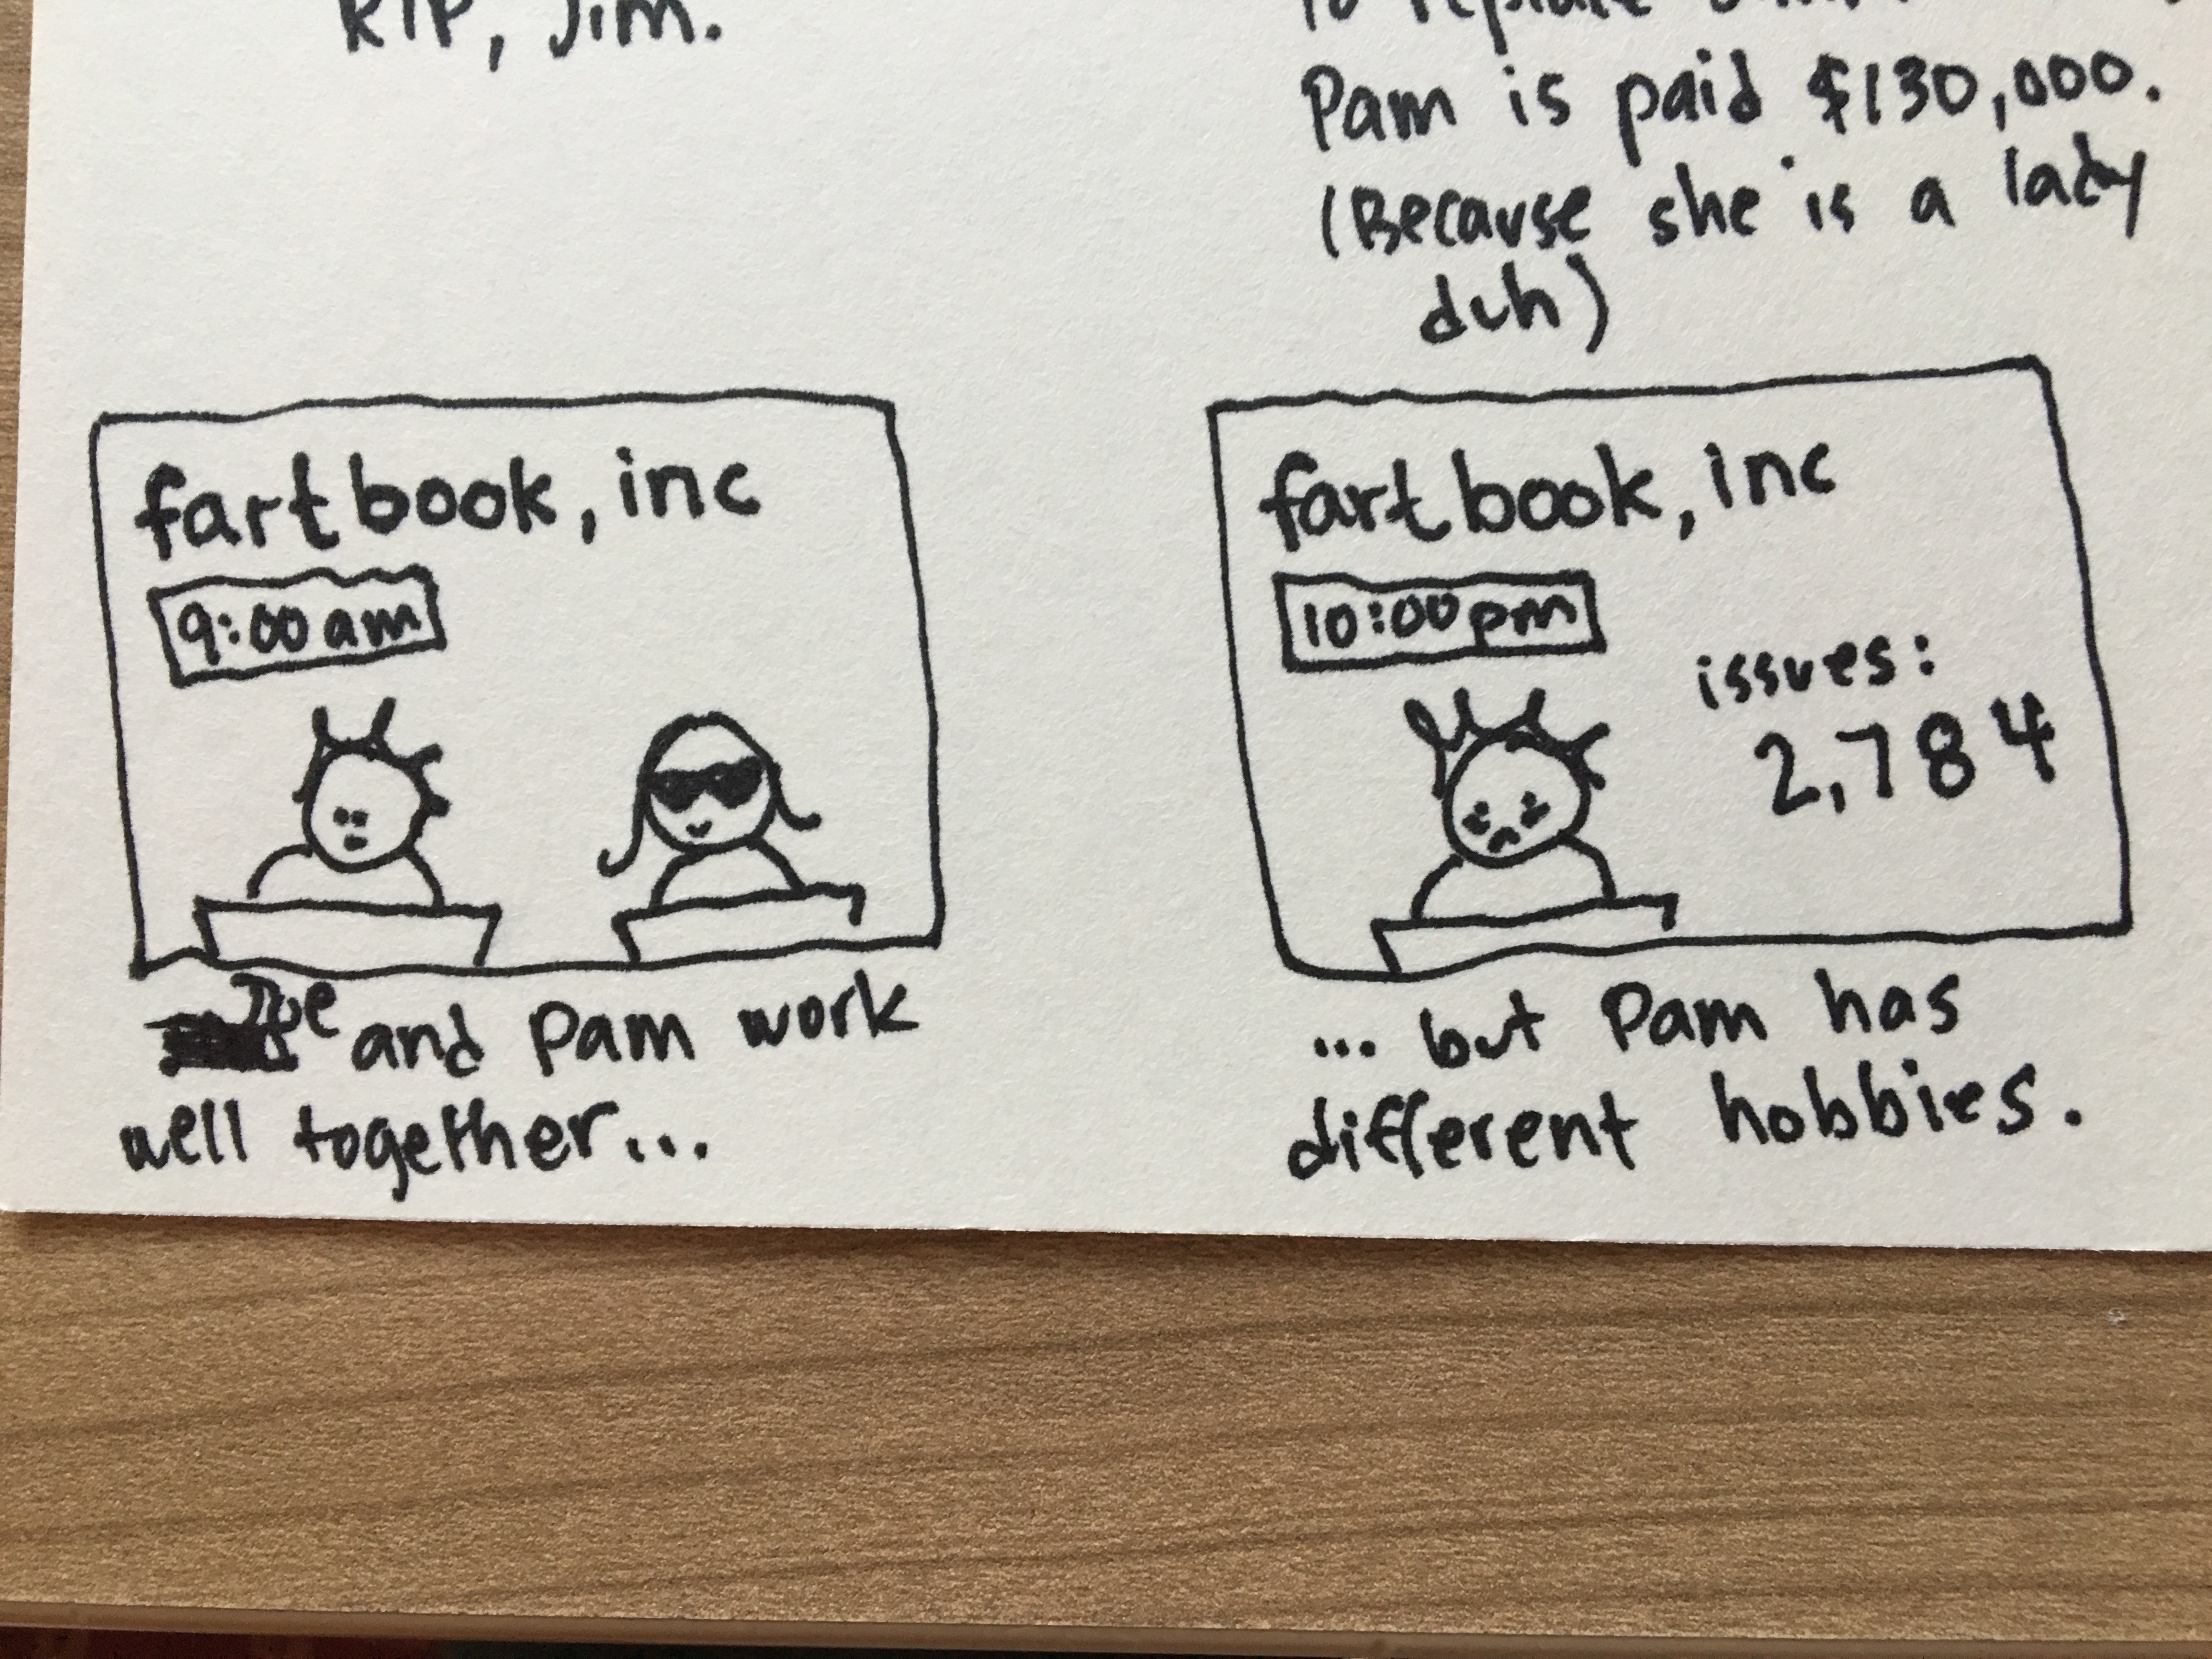 RIP, Jim.
Pam is paid $130,000.
(Because she is a lady
duh)
fartbook, inc
9:00 am
and Pam work
well together...
fartbook, inc
10:00 pm
issues:
2,784
... but Pam has
different hobbies.